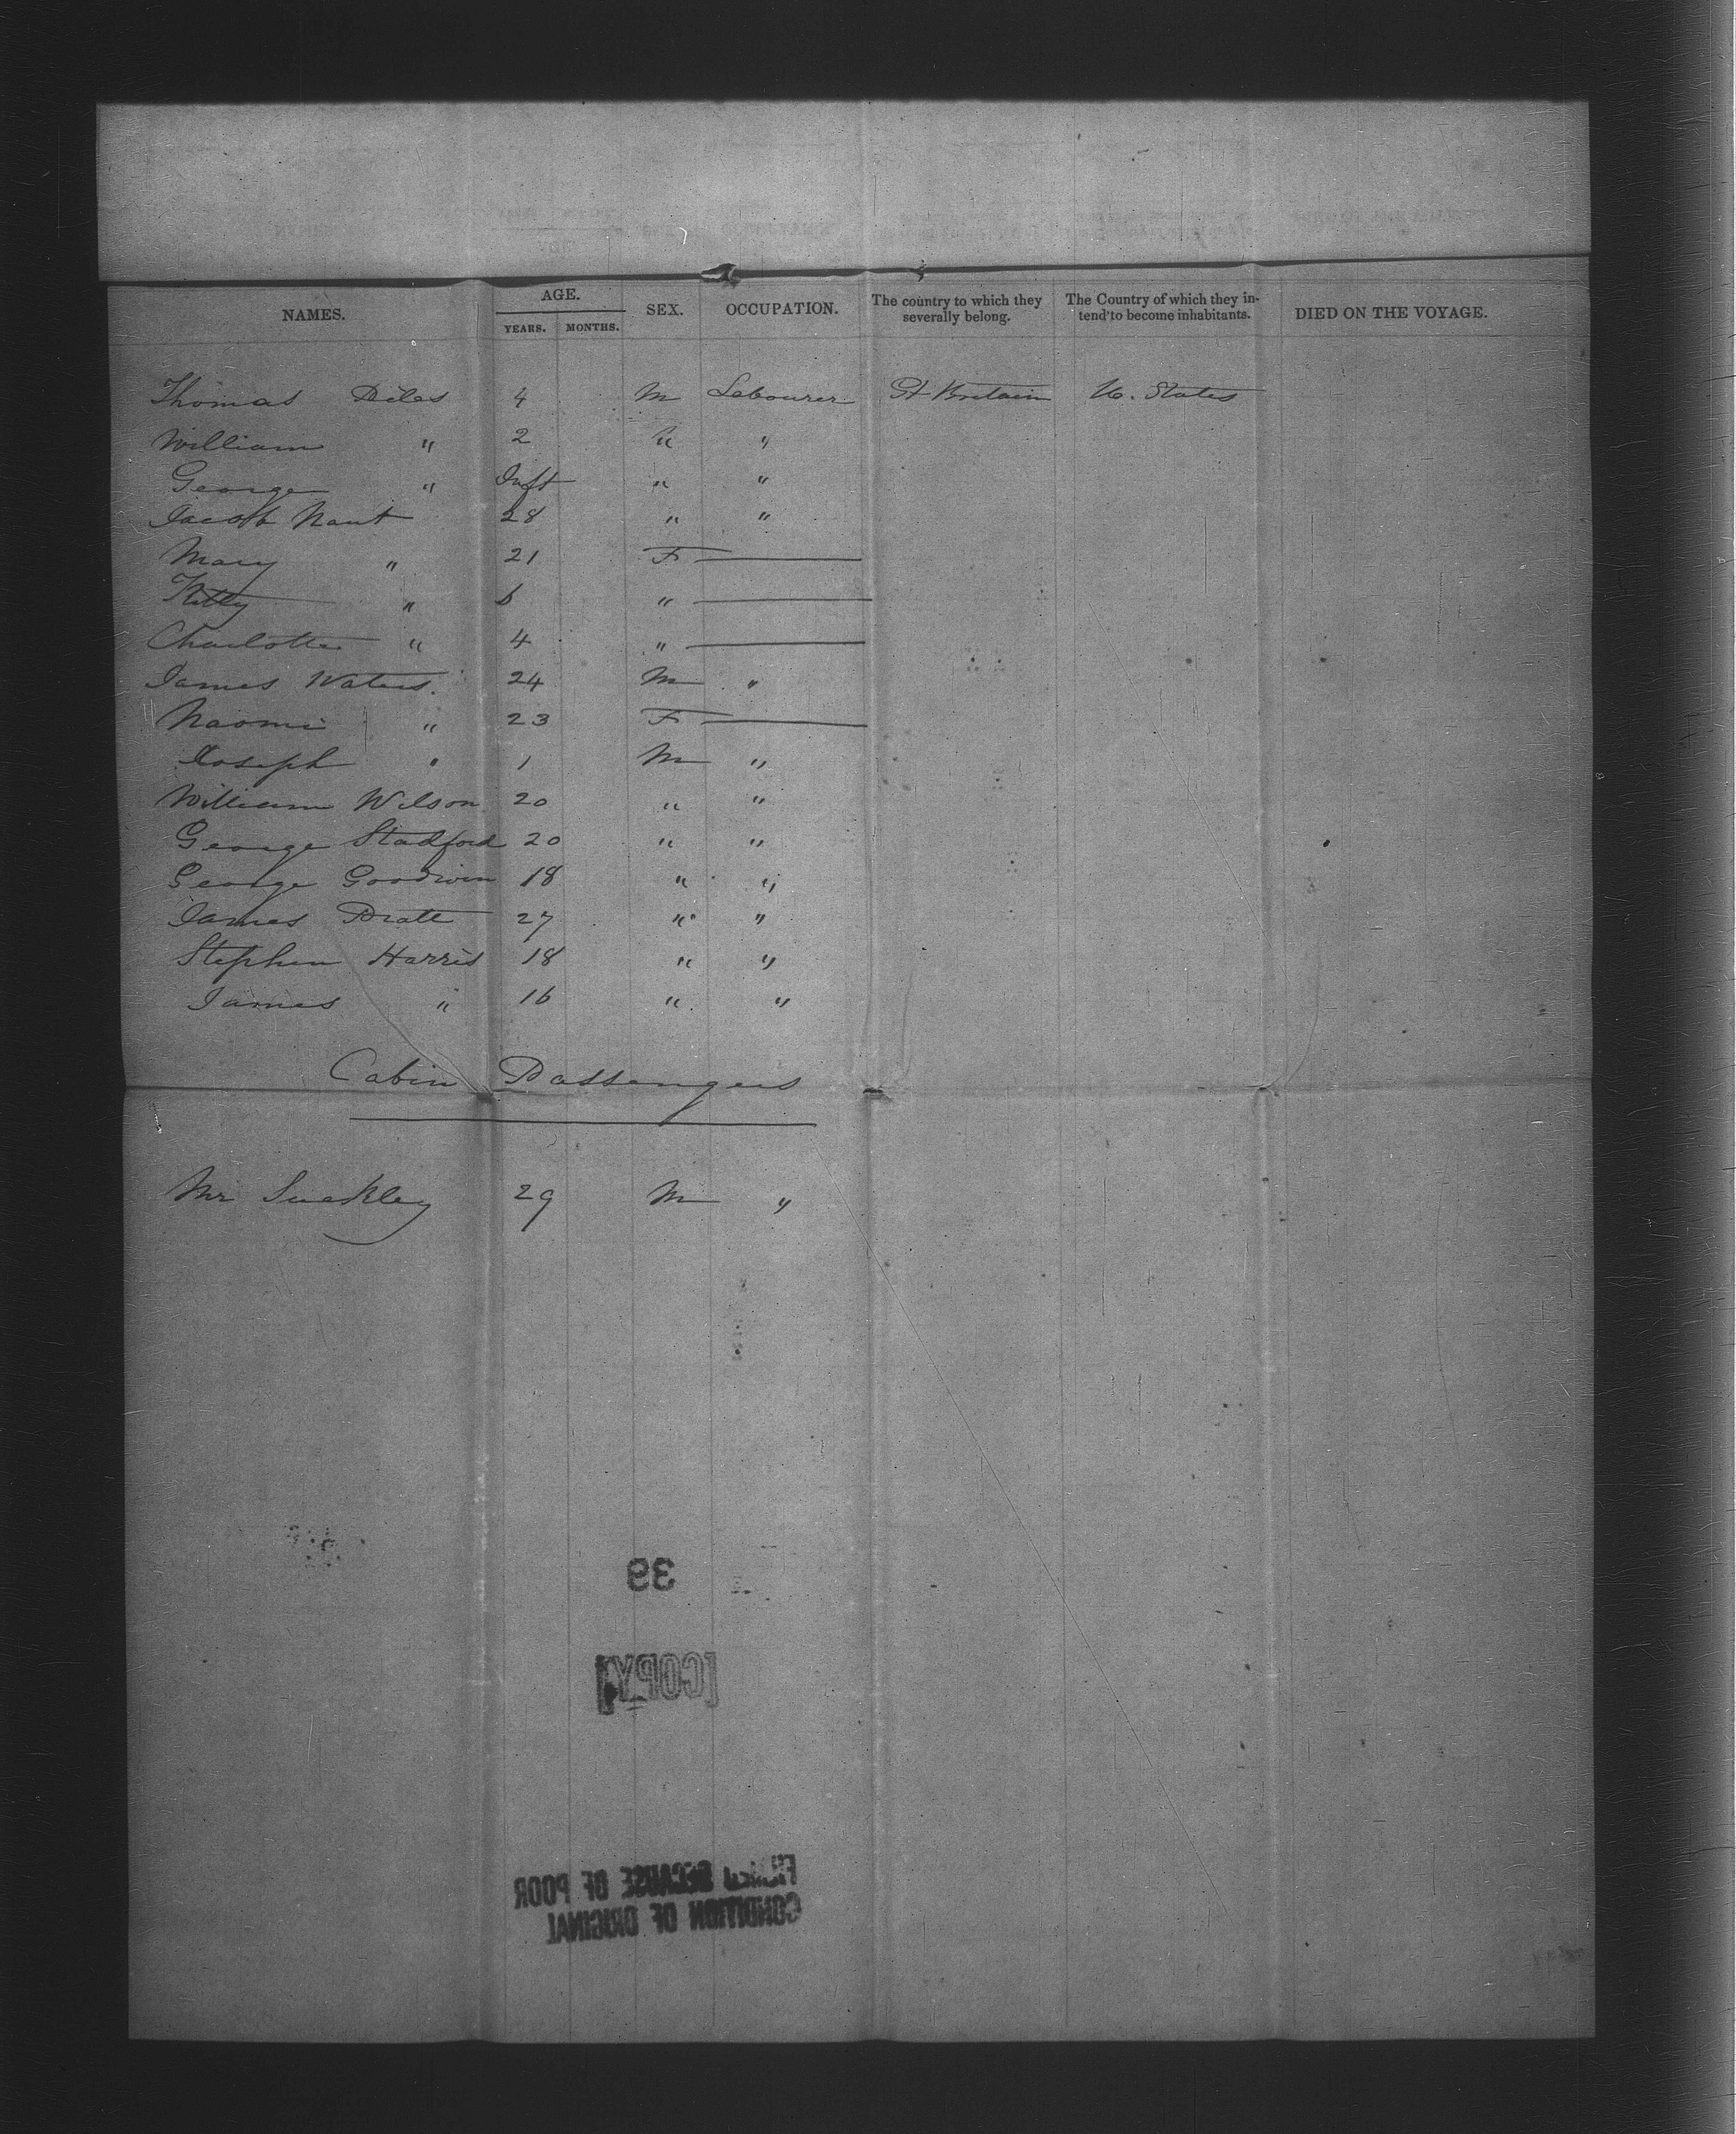 NAMES. AGE. SEX. OCCUPATION. The country to which they severally belong. The Country of which they intend to become inhabitants. DIED ON THE VOYAGE.
YEARS. MONTHS.
Thomas Diles 4 M Labourer Gt Britain U. States
William " 2 " "
George " Inft " "
Jacob Nant 28 " "
Mary " 21 F
Kitty " 6 "
Charlotte " 4 "
James Waters. 24 M "
Naomi " 23 F
Joseph " 1 M "
William Wilson 20 " "
George Stadford 20 " "
George Goodwin 18 " "
James Pratt 27 " "
Stephen Harris 18 " "
James " 16 " "
Cabin Passengers
Mr Suckley 29 M "
39
[COPY]
FILMED BECAUSE OF POOR
CONDITION OF ORIGINAL